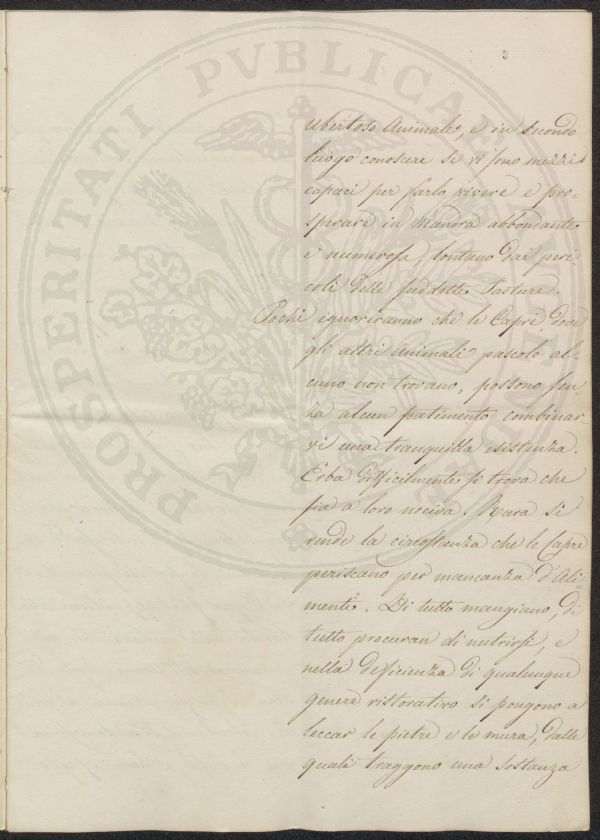 3
ubertoso Animale, e in secondo
luogo conoscere se vi sono mezzi
capaci per farlo vivere e pro-
sperare in Mandra abbondante
e numerosa, lontano dai peri-
coli delle suddette Pasture.
Pochi ignoriranno che le Capre, dove
gli altri Animali pascolo al-
cuno non trovano, possono sen-
za alcun patimento combinar-
vi una tranquilla esistenza.
Erba difficilmente si trova che
sia a loro nociva. Rara si
rende la circostanza che le Capre
periscano per mancanza d'Ali-
menti. Di tutto mangiano, di
tutto procuran di nutrirsi, e
nella defficienza di qualunque
genere ristorativo si pongono a
leccar le pietre e le mura, dalle
quali traggono una sostanza
PROSPERITATI PVBLICAE